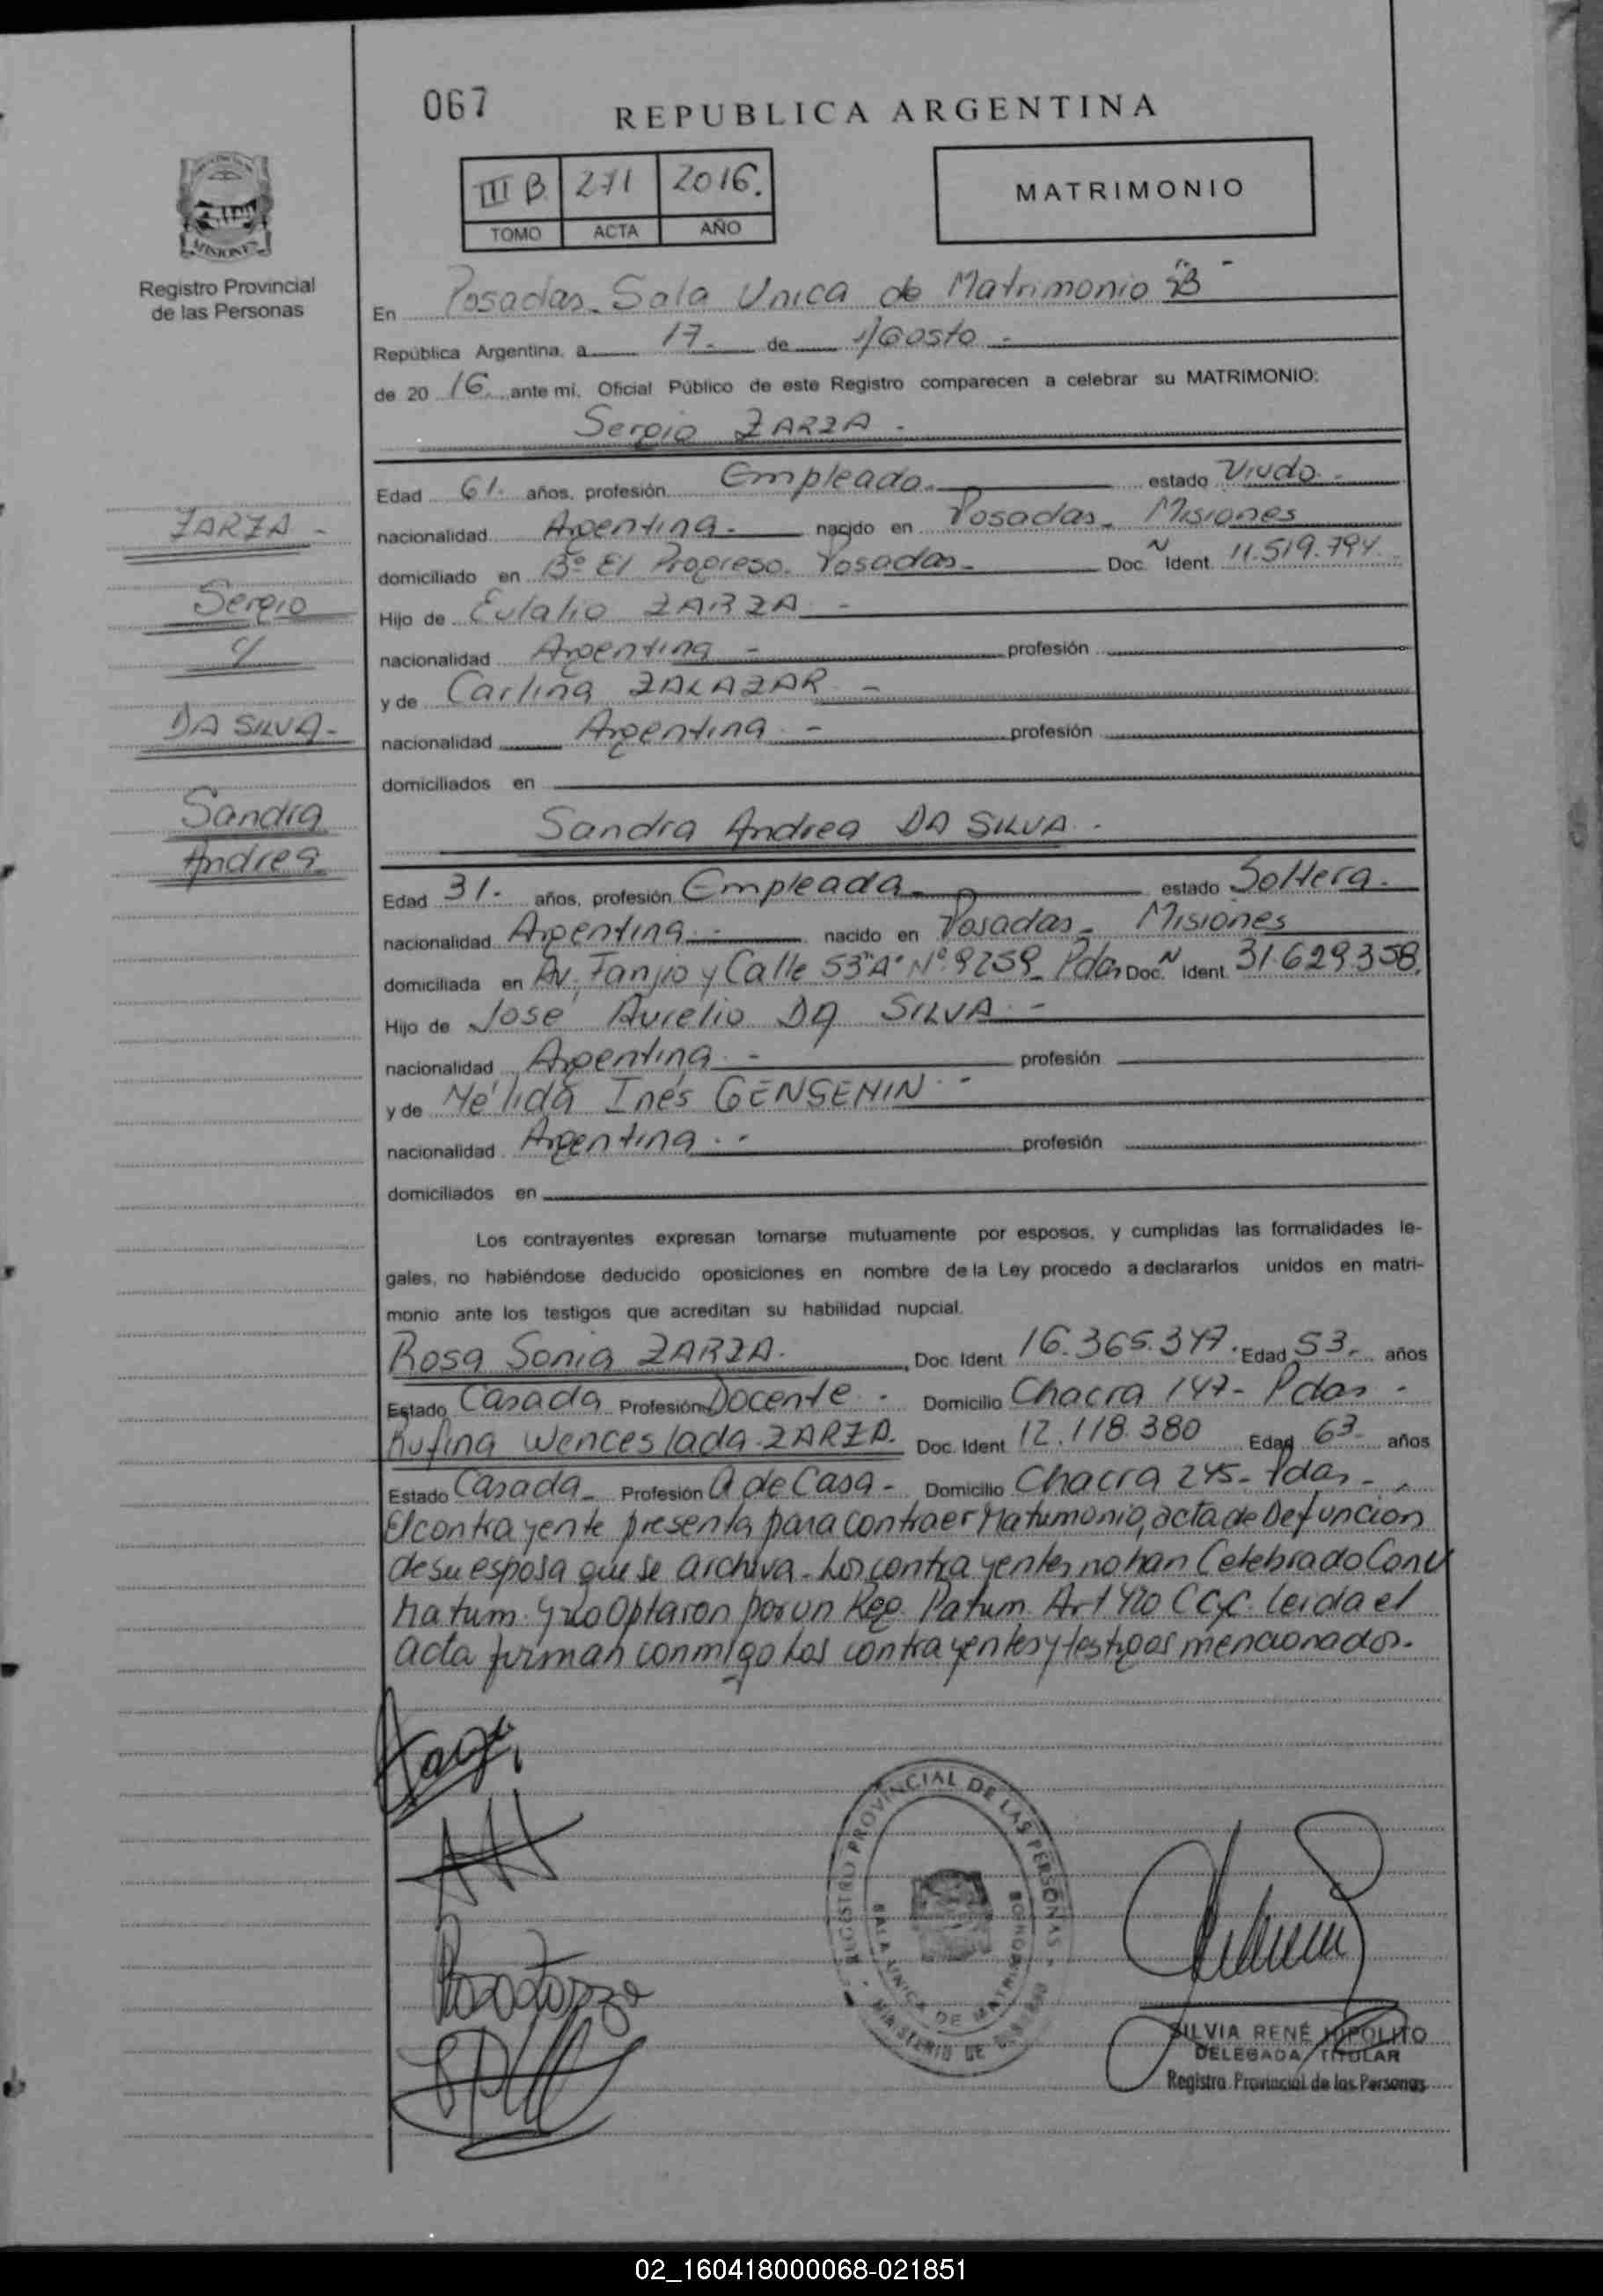 067
REPUBLICA ARGENTINA
III B 271 2016.
TOMO ACTA AÑO
MATRIMONIO
MISIONES
Registro Provincial
de las Personas
En Posadas. Sala Unica de Matrimonio "B" -
República Argentina, a 17. de Agosto -
de 20 16. ante mi, Oficial Público de este Registro comparecen a celebrar su MATRIMONIO:
Sergio ZARZA -
Edad 61. años, profesión Empleado. estado Viudo. -
ZARZA -
nacionalidad Argentina. nacido en Posadas - Misiones
domiciliado en Bº El Progreso. Posadas - Doc. N Ident. 11.519.794.
Sergio
Hijo de Eulalio ZARZA -
y
nacionalidad Argentina - profesión
y de Carlina ZALAZAR -
DA SILVA -
nacionalidad Argentina - profesión
domiciliados en
Sandra
Andrea
Sandra Andrea DA SILVA. -
Edad 31. años, profesión Empleada estado Soltera.
nacionalidad Argentina - nacido en Posadas - Misiones
domiciliada en Av. Fanjio y Calle 53"A" Nº 9259 Pdas Doc. N Ident. 31.629.358.
Hijo de José Aurelio DA SILVA -
nacionalidad Argentina - profesión
y de Nélida Inés GENSENIN -
nacionalidad Argentina - profesión
domiciliados en
Los contrayentes expresan tomarse mutuamente por esposos, y cumplidas las formalidades le-
gales, no habiéndose deducido oposiciones en nombre de la Ley procedo a declararlos unidos en matri-
monio ante los testigos que acreditan su habilidad nupcial.
Rosa Sonia ZARZA. , Doc. Ident. 16.365.347. Edad 53. años
Estado Casada Profesión Docente - Domicilio Chacra 147 - Pdas -
Rufina Wenceslada ZARZA. Doc. Ident. 12.118.380 Edad 63 años
Estado Casada - Profesión A de Casa - Domicilio Chacra 245 - Pdas -
El contrayente presenta para contraer Matrimonio, acta de Defuncion
de su esposa que se archiva. Los contrayentes no han Celebrado Conv
Matrim. y no Optaron por un Reg. Patrim. Art 420 CCyC. leida el
acta firman conmigo los contrayentes y testigos mencionados.
REGISTRO PROVINCIAL DE LAS PERSONAS
SALA UNICA DE MATRIMONIOS
MINISTERIO DE GOBIERNO
SILVIA RENÉ HIPOLITO
DELEGADA TITULAR
Registro Provincial de las Personas
02_160418000068-021851